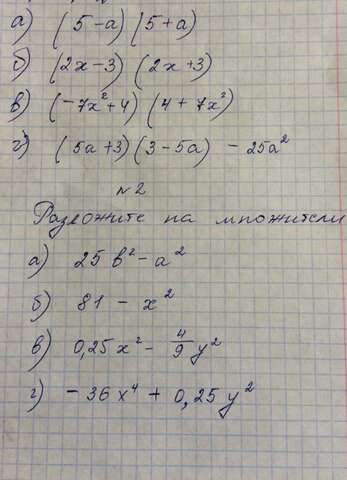 а) (5-a) (5+a)
б) (2x-3) (2x+3)
в) (-7x²+4) (4+7x²)
г) (5a+3) (3-5a) - 25a²
№2
Разложите на множители
а) 25b² - a²
б) 81 - x²
в) 0,25x² - 4/9 y²
г) -36x⁴ + 0,25y²